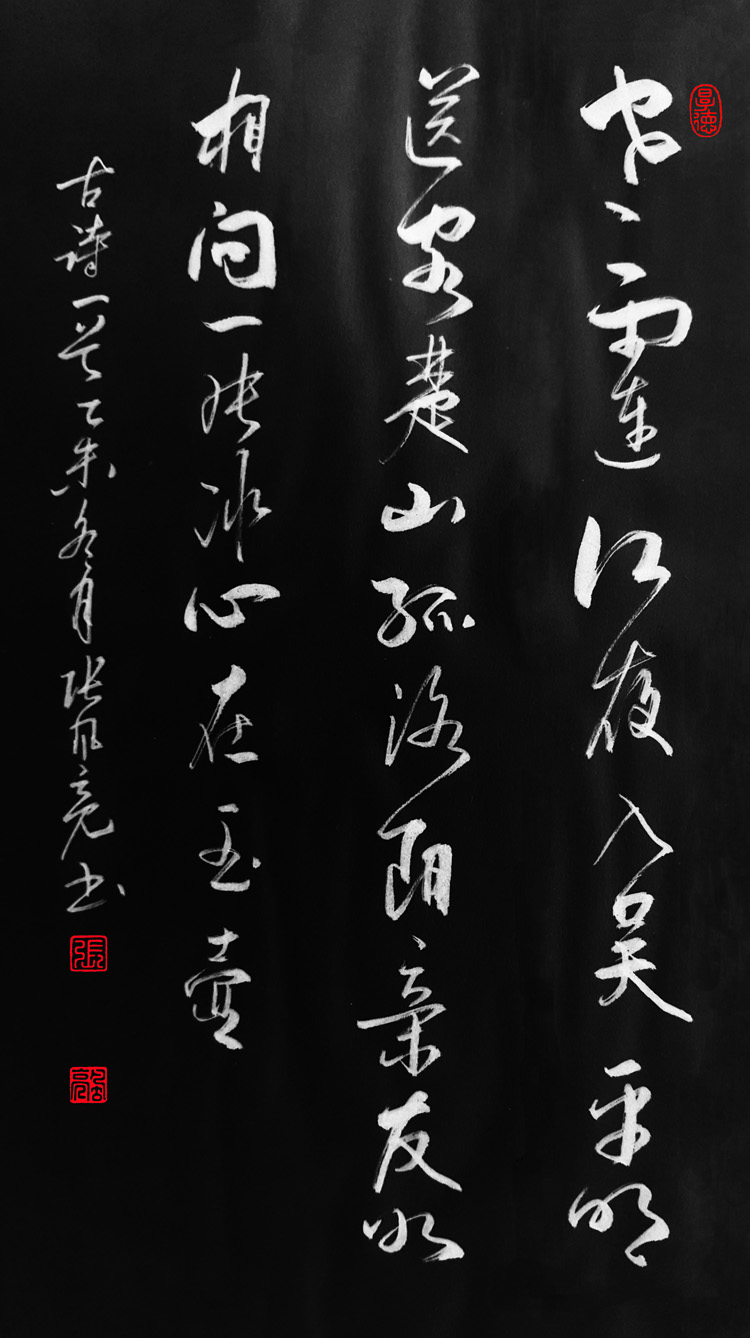 寒雨連江夜入吴平明
送客楚山孤洛阳亲友如
相问一片冰心在玉壶
古诗一首乙未冬月张风亮书
張